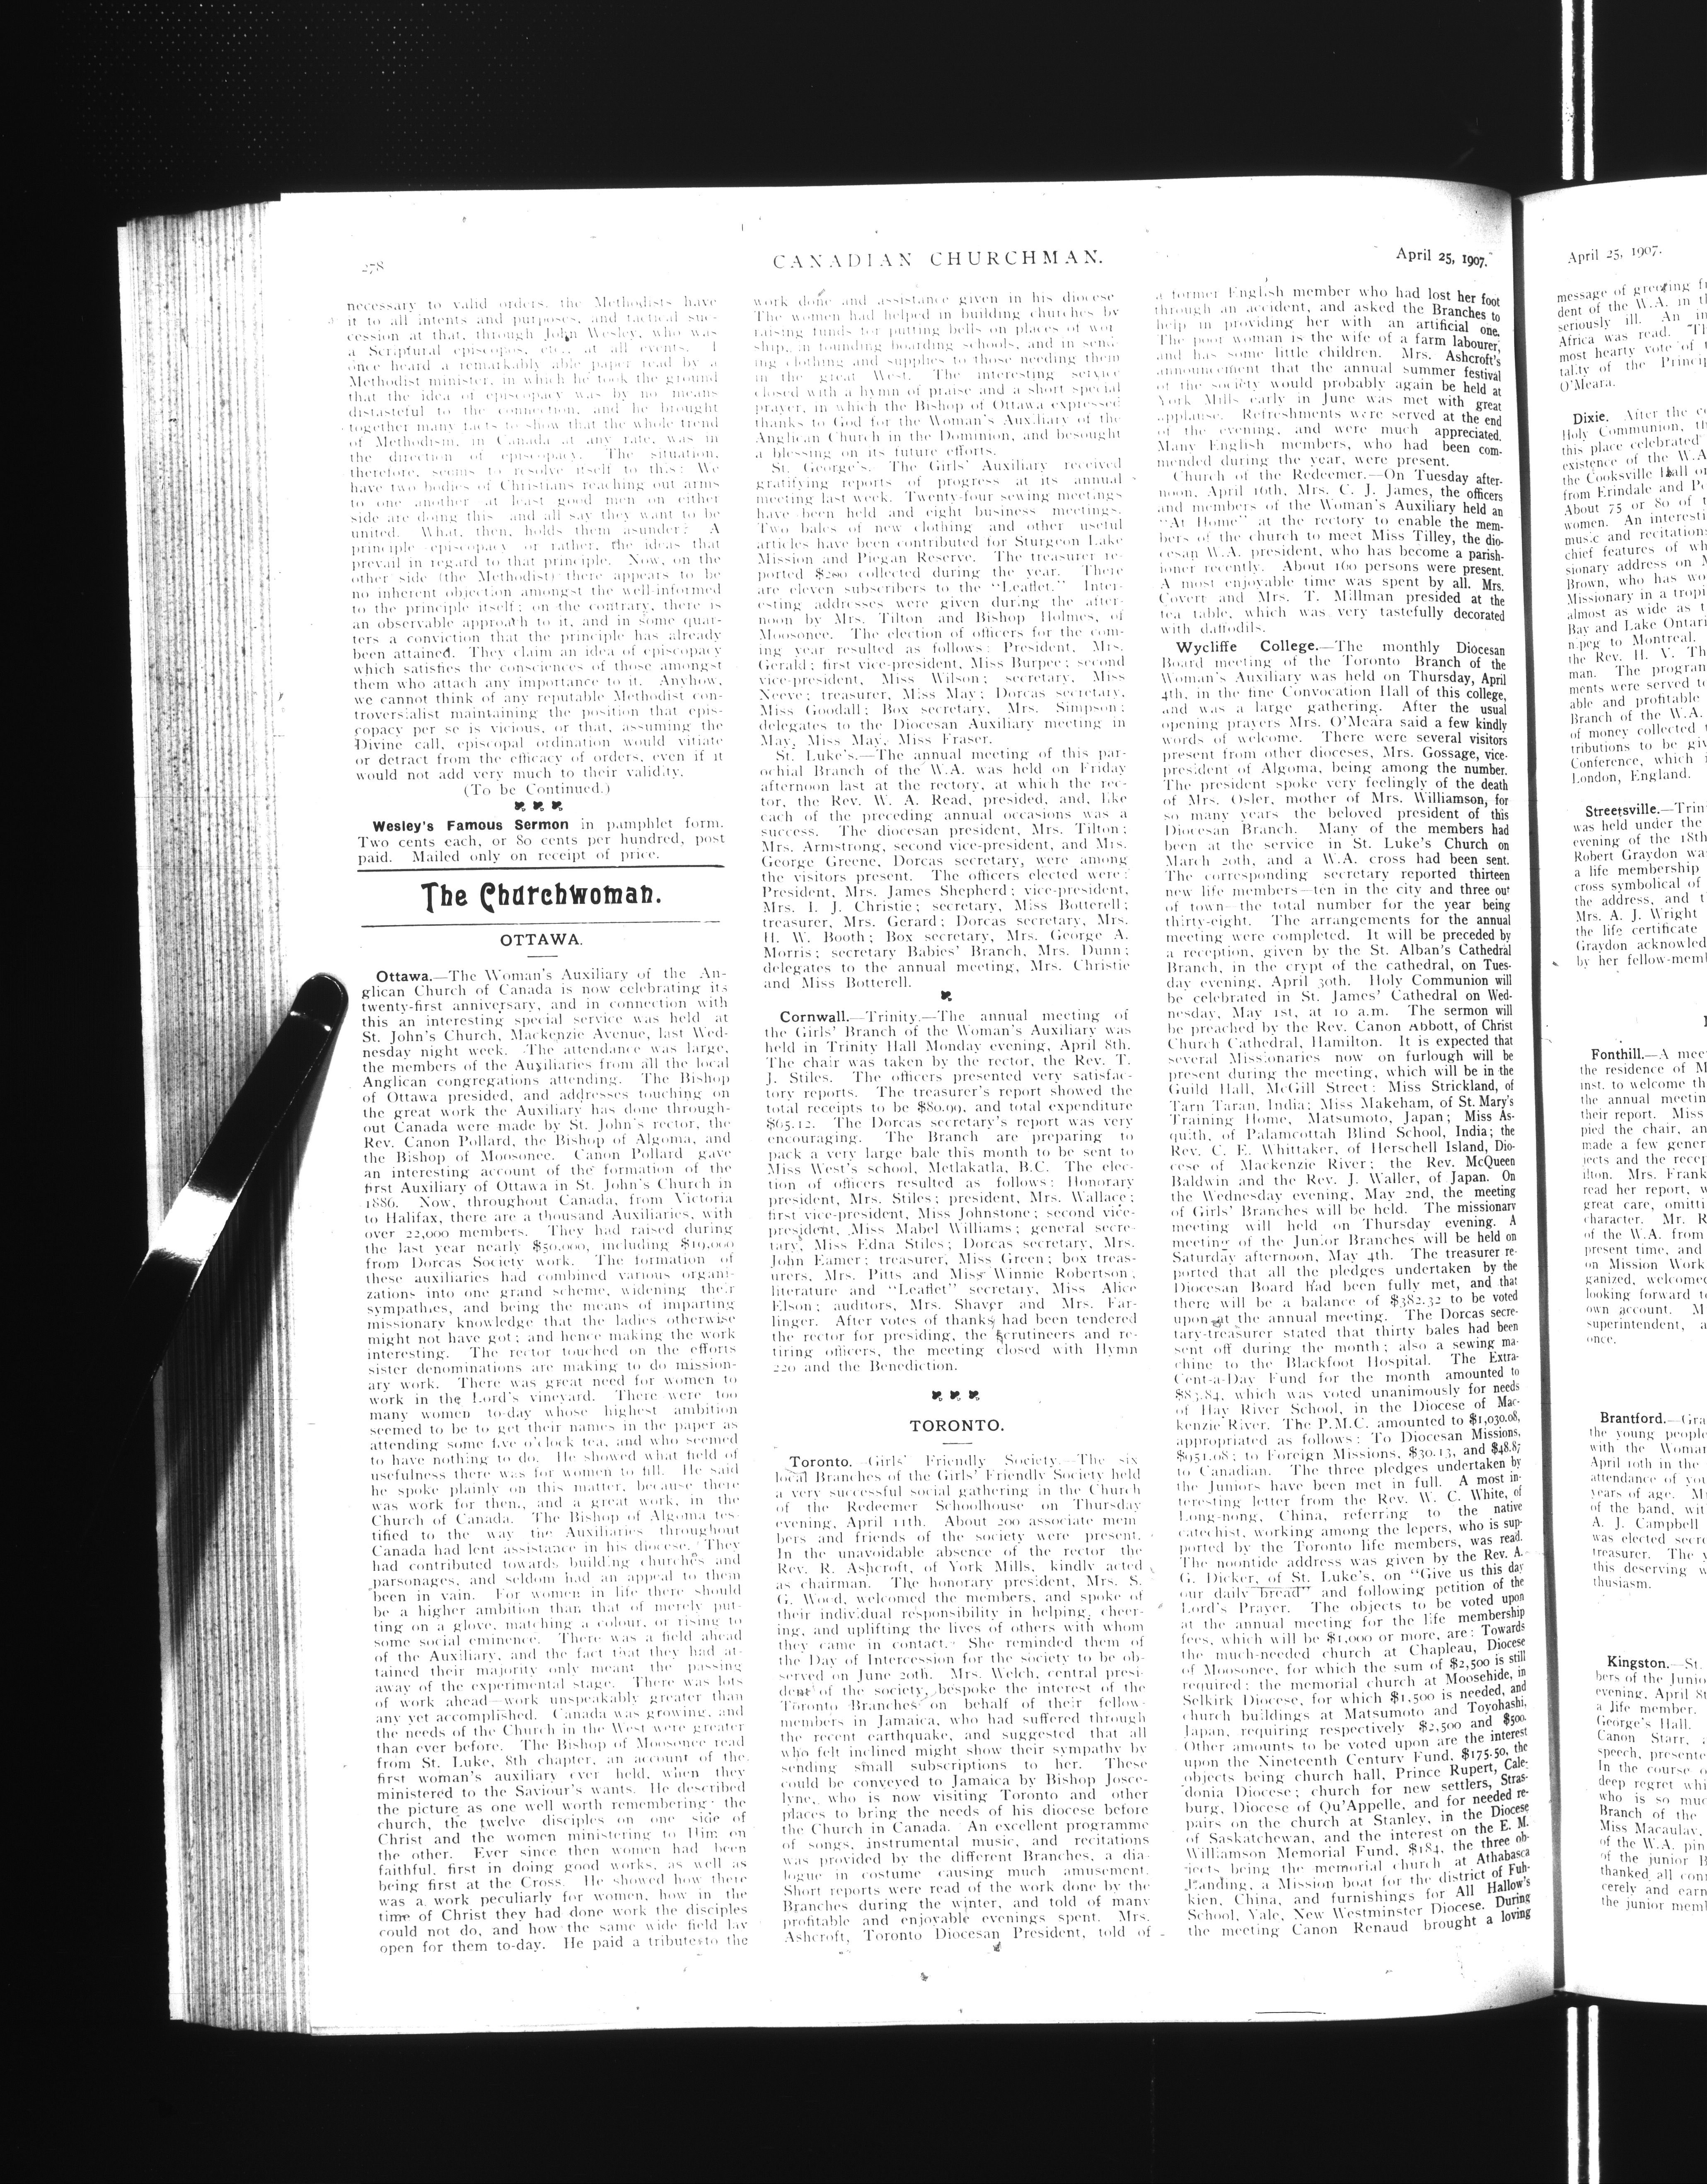 278
CANADIAN CHURCHMAN.
April 25, 1907.
necessary to valid orders, the Methodists have
it to all intents and purposes, and tactical suc-
cession at that, through John Wesley, who was
a Scriptural episcopos, etc., at all events. I
once heard a remarkably able paper read by a
Methodist minister, in which he took the ground
that the idea of episcopacy was by no means
distasteful to the connection, and he brought
together many facts to show that the whole trend
of Methodism, in Canada at any rate, was in
the direction of episcopacy. The situation,
therefore, seems to resolve itself to this: We
have two bodies of Christians reaching out arms
to one another at least good men on either
side are doing this and all say they want to be
united. What, then, holds them asunder? A
principle episcopacy or rather, the ideas that
prevail in regard to that principle. Now, on the
other side (the Methodist) there appears to be
no inherent objection amongst the well-informed
to the principle itself; on the contrary, there is
an observable approach to it, and in some quar-
ters a conviction that the principle has already
been attained. They claim an idea of episcopacy
which satisfies the consciences of those amongst
them who attach any importance to it. Anyhow,
we cannot think of any reputable Methodist con-
troversialist maintaining the position that epis-
copacy per se is vicious, or that, assuming the
Divine call, episcopal ordination would vitiate
or detract from the efficacy of orders, even if it
would not add very much to their validity.
(To be Continued.)
Wesley's Famous Sermon in pamphlet form.
Two cents each, or 80 cents per hundred, post
paid. Mailed only on receipt of price.
The Churchwoman.
OTTAWA.
Ottawa.—The Woman's Auxiliary of the An-
glican Church of Canada is now celebrating its
twenty-first anniversary, and in connection with
this an interesting special service was held at
St. John's Church, Mackenzie Avenue, last Wed-
nesday night week. The attendance was large,
the members of the Auxiliaries from all the local
Anglican congregations attending. The Bishop
of Ottawa presided, and addresses touching on
the great work the Auxiliary has done through-
out Canada were made by St. John's rector, the
Rev. Canon Pollard, the Bishop of Algoma, and
the Bishop of Moosonee. Canon Pollard gave
an interesting account of the formation of the
first Auxiliary of Ottawa in St. John's Church in
1886. Now, throughout Canada, from Victoria
to Halifax, there are a thousand Auxiliaries, with
over 22,000 members. They had raised during
the last year nearly $50,000, including $19,000
from Dorcas Society work. The formation of
these auxiliaries had combined various organi-
zations into one grand scheme, widening their
sympathies, and being the means of imparting
missionary knowledge that the ladies otherwise
might not have got; and hence making the work
interesting. The rector touched on the efforts
sister denominations are making to do mission-
ary work. There was great need for women to
work in the Lord's vineyard. There were too
many women to-day whose highest ambition
seemed to be to get their names in the paper as
attending some five o'clock tea, and who seemed
to have nothing to do. He showed what field of
usefulness there was for women to fill. He said
he spoke plainly on this matter, because there
was work for them, and a great work, in the
Church of Canada. The Bishop of Algoma tes-
tified to the way the Auxiliaries throughout
Canada had lent assistance in his diocese. They
had contributed towards building churches and
parsonages, and seldom had an appeal to them
been in vain. For women in life there should
be a higher ambition than that of merely put-
ting on a glove, matching a colour, or rising to
some social eminence. There was a field ahead
of the Auxiliary, and the fact that they had at-
tained their majority only meant the passing
away of the experimental stage. There was lots
of work ahead—work unspeakably greater than
any yet accomplished. Canada was growing, and
the needs of the Church in the West were greater
than ever before. The Bishop of Moosonee read
from St. Luke, 8th chapter, an account of the
first woman's auxiliary ever held, when they
ministered to the Saviour's wants. He described
the picture as one well worth remembering: the
church, the twelve disciples on one side of
Christ and the women ministering to Him on
the other. Ever since then women had been
faithful, first in doing good works, as well as
being first at the Cross. He showed how there
was a work peculiarly for women, how in the
time of Christ they had done work the disciples
could not do, and how the same wide field lay
open for them to-day. He paid a tribute to the
work done and assistance given in his diocese
The women had helped in building churches by
raising funds for putting bells on places of wor
ship, in founding boarding schools, and in send
ing clothing and supplies to those needing them
in the great West. The interesting service
closed with a hymn of praise and a short special
prayer, in which the Bishop of Ottawa expressed
thanks to God for the Woman's Auxiliary of the
Anglican Church in the Dominion, and besought
a blessing on its future efforts.
St. George's. The Girls' Auxiliary received
gratifying reports of progress at its annual
meeting last week. Twenty-four sewing meetings
have been held and eight business meetings.
Two bales of new clothing and other useful
articles have been contributed for Sturgeon Lake
Mission and Piegan Reserve. The treasurer re-
ported $280 collected during the year. There
are eleven subscribers to the "Leaflet." Inter-
esting addresses were given during the after-
noon by Mrs. Tilton and Bishop Holmes, of
Moosonee. The election of officers for the com-
ing year resulted as follows: President, Mrs.
Gerald; first vice-president, Miss Burpee; second
vice-president, Miss Wilson; secretary, Miss
Neeve; treasurer, Miss May; Dorcas secretary,
Miss Goodall; Box secretary, Mrs. Simpson;
delegates to the Diocesan Auxiliary meeting in
May, Miss May, Miss Fraser.
St. Luke's.—The annual meeting of this par-
ochial Branch of the W.A. was held on Friday
afternoon last at the rectory, at which the rec-
tor, the Rev. W. A. Read, presided, and, like
each of the preceding annual occasions was a
success. The diocesan president, Mrs. Tilton;
Mrs. Armstrong, second vice-president, and Mrs.
George Greene, Dorcas secretary, were among
the visitors present. The officers elected were:
President, Mrs. James Shepherd; vice-president,
Mrs. I. J. Christie; secretary, Miss Botterell;
treasurer, Mrs. Gerard; Dorcas secretary, Mrs.
H. W. Booth; Box secretary, Mrs. George A.
Morris; secretary Babies' Branch, Mrs. Dunn;
delegates to the annual meeting, Mrs. Christie
and Miss Botterell.
Cornwall.—Trinity.—The annual meeting of
the Girls' Branch of the Woman's Auxiliary was
held in Trinity Hall Monday evening, April 8th.
The chair was taken by the rector, the Rev. T.
J. Stiles. The officers presented very satisfac-
tory reports. The treasurer's report showed the
total receipts to be $80.99, and total expenditure
$65.12. The Dorcas secretary's report was very
encouraging. The Branch are preparing to
pack a very large bale this month to be sent to
Miss West's school, Metlakatla, B.C. The elec-
tion of officers resulted as follows: Honorary
president, Mrs. Stiles; president, Mrs. Wallace;
first vice-president, Miss Johnstone; second vice-
president, Miss Mabel Williams; general secre-
tary, Miss Edna Stiles; Dorcas secretary, Mrs.
John Eamer; treasurer, Miss Green; box treas-
urers, Mrs. Pitts and Miss Winnie Robertson,
literature and "Leaflet" secretary, Miss Alice
Elson; auditors, Mrs. Shaver and Mrs. Far-
linger. After votes of thanks had been tendered
the rector for presiding, the scrutineers and re-
tiring officers, the meeting closed with Hymn
220 and the Benediction.
TORONTO.
Toronto. Girls' Friendly Society.—The six
local Branches of the Girls' Friendly Society held
a very successful social gathering in the Church
of the Redeemer Schoolhouse on Thursday
evening, April 11th. About 200 associate mem
bers and friends of the society were present.
In the unavoidable absence of the rector the
Rev. R. Ashcroft, of York Mills, kindly acted
as chairman. The honorary president, Mrs. S.
G. Wood, welcomed the members, and spoke of
their individual responsibility in helping, cheer-
ing, and uplifting the lives of others with whom
they came in contact. She reminded them of
the Day of Intercession for the society to be ob-
served on June 20th. Mrs. Welch, central presi-
dent of the society, bespoke the interest of the
Toronto Branches on behalf of their fellow-
members in Jamaica, who had suffered through
the recent earthquake, and suggested that all
who felt inclined might show their sympathy by
sending small subscriptions to her. These
could be conveyed to Jamaica by Bishop Josce-
lyne, who is now visiting Toronto and other
places to bring the needs of his diocese before
the Church in Canada. An excellent programme
of songs, instrumental music, and recitations
was provided by the different Branches, a dia-
logue in costume causing much amusement.
Short reports were read of the work done by the
Branches during the winter, and told of many
profitable and enjoyable evenings spent. Mrs.
Ashcroft, Toronto Diocesan President, told of
a former English member who had lost her foot
through an accident, and asked the Branches to
help in providing her with an artificial one.
The poor woman is the wife of a farm labourer,
and has some little children. Mrs. Ashcroft's
announcement that the annual summer festival
of the society would probably again be held at
York Mills early in June was met with great
applause. Refreshments were served at the end
of the evening, and were much appreciated.
Many English members, who had been com-
mended during the year, were present.
Church of the Redeemer.—On Tuesday after-
noon, April 16th, Mrs. C. J. James, the officers
and members of the Woman's Auxiliary held an
"At Home" at the rectory to enable the mem-
bers of the church to meet Miss Tilley, the dio-
cesan W.A. president, who has become a parish-
ioner recently. About 160 persons were present.
A most enjoyable time was spent by all. Mrs.
Covert and Mrs. T. Millman presided at the
tea table, which was very tastefully decorated
with daffodils.
Wycliffe College.—The monthly Diocesan
Board meeting of the Toronto Branch of the
Woman's Auxiliary was held on Thursday, April
4th, in the fine Convocation Hall of this college,
and was a large gathering. After the usual
opening prayers Mrs. O'Meara said a few kindly
words of welcome. There were several visitors
present from other dioceses, Mrs. Gossage, vice-
president of Algoma, being among the number.
The president spoke very feelingly of the death
of Mrs. Osler, mother of Mrs. Williamson, for
so many years the beloved president of this
Diocesan Branch. Many of the members had
been at the service in St. Luke's Church on
March 20th, and a W.A. cross had been sent.
The corresponding secretary reported thirteen
new life members—ten in the city and three out
of town—the total number for the year being
thirty-eight. The arrangements for the annual
meeting were completed. It will be preceded by
a reception, given by the St. Alban's Cathedral
Branch, in the crypt of the cathedral, on Tues-
day evening, April 30th. Holy Communion will
be celebrated in St. James' Cathedral on Wed-
nesday, May 1st, at 10 a.m. The sermon will
be preached by the Rev. Canon Abbott, of Christ
Church Cathedral, Hamilton. It is expected that
several Missionaries now on furlough will be
present during the meeting, which will be in the
Guild Hall, McGill Street: Miss Strickland, of
Tarn Taran, India; Miss Makeham, of St. Mary's
Training Home, Matsumoto, Japan; Miss As-
quith, of Palamcottah Blind School, India; the
Rev. C. E. Whittaker, of Herschell Island, Dio-
cese of Mackenzie River; the Rev. McQueen
Baldwin and the Rev. J. Waller, of Japan. On
the Wednesday evening, May 2nd, the meeting
of Girls' Branches will be held. The missionary
meeting will held on Thursday evening. A
meeting of the Junior Branches will be held on
Saturday afternoon, May 4th. The treasurer re-
ported that all the pledges undertaken by the
Diocesan Board had been fully met, and that
there will be a balance of $382.32 to be voted
upon at the annual meeting. The Dorcas secre-
tary-treasurer stated that thirty bales had been
sent off during the month; also a sewing ma-
chine to the Blackfoot Hospital. The Extra-
Cent-a-Day Fund for the month amounted to
$83.84, which was voted unanimously for needs
of Hay River School, in the Diocese of Mac-
kenzie River. The P.M.C. amounted to $1,030.08,
appropriated as follows: To Diocesan Missions,
$951.08; to Foreign Missions, $30.13, and $48.87
to Canadian. The three pledges undertaken by
the Juniors have been met in full. A most in-
teresting letter from the Rev. W. C. White, of
Long-nong, China, referring to the native
catechist, working among the lepers, who is sup-
ported by the Toronto life members, was read.
The noontide address was given by the Rev. A.
G. Dicker, of St. Luke's, on "Give us this day
our daily bread" and following petition of the
Lord's Prayer. The objects to be voted upon
at the annual meeting for the life membership
fees, which will be $1,000 or more, are: Towards
the much-needed church at Chapleau, Diocese
of Moosonee, for which the sum of $2,500 is still
required; the memorial church at Moosehide, in
Selkirk Diocese, for which $1,500 is needed, and
church buildings at Matsumoto and Toyohashi,
Japan, requiring respectively $2,500 and $500.
Other amounts to be voted upon are the interest
upon the Nineteenth Century Fund, $175.50, the
objects being church hall, Prince Rupert, Cale-
donia Diocese; church for new settlers, Stras-
burg, Diocese of Qu'Appelle, and for needed re-
pairs on the church at Stanley, in the Diocese
of Saskatchewan, and the interest on the E. M.
Williamson Memorial Fund, $184, the three ob-
jects being the memorial church at Athabasca
Landing, a Mission boat for the district of Fuh-
kien, China, and furnishings for All Hallow's
School, Yale, New Westminster Diocese. During
the meeting Canon Renaud brought a loving
April 25, 1907.
message of greeting
dent of the W.A. in
seriously ill. An
Africa was read.
most hearty vote of
tality of the
O'Meara.
Dixie. After the
Holy Communion,
this place celebrated
existence of the W.A
the Cooksville Hall
from Erindale and
About 75 or 80 of
women. An
music and recitation
chief features of
sionary address on
Brown, who has
Missionary in a
almost as wide as
Bay and Lake
nipeg to Montreal.
the Rev. H. V.
man. The
ments were served
able and profitable
Branch of the W.A.
of money collected
tributions to be
Conference, which
London, England.
Streetsville.—
was held under the
evening of the 18th
Robert Graydon
a life membership
cross symbolical of
the address, and
Mrs. A. J. Wright
the life certificate
Graydon
by her
Fonthill.—A
the residence of
inst. to welcome
the annual
their report. Miss
pied the chair,
made a few
jects and the
ilton. Mrs.
read her report,
great care,
character. Mr.
of the W.A. from
present time, and
on Mission Work
ganized,
looking forward
own account.
superintendent,
once.
Brantford.—
the young people
with the
April 10th in the
attendance of
years of age.
of the band,
A. J. Campbell
was elected
treasurer. The
this deserving
thusiasm.
Kingston.—St.
bers of the
evening, April
a life member.
George's Hall.
Canon Starr,
speech,
In the course
deep regret
who is so
Branch of the
Miss Macaulay,
of the W.A.
of the junior
thanked all
cerely and
the junior